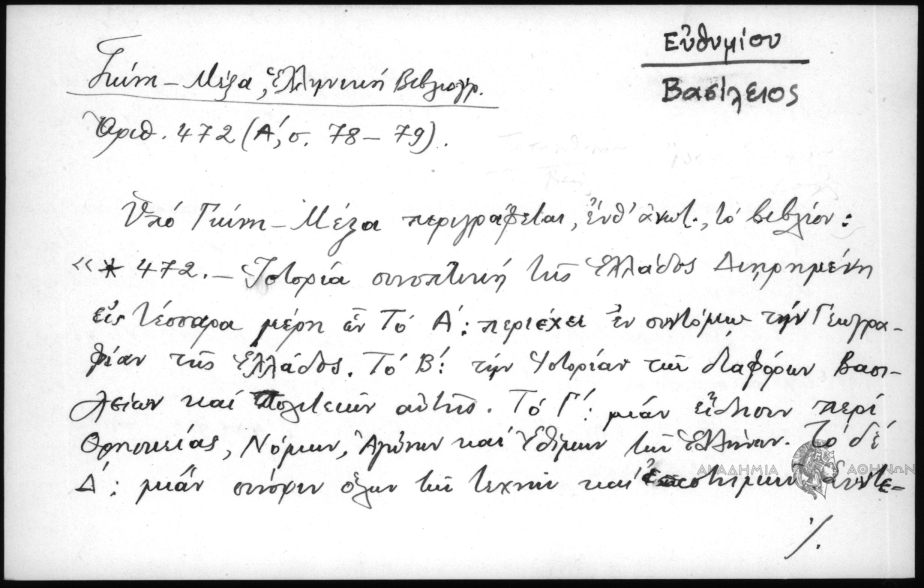 Εὐθυμίου
Βασίλειος
Γκίνη – Μέξα, Ἑλληνική Βιβλιογρ.
Ἀριθ. 472 (Α΄, σ. 78 – 79).
Ὑπό Γκίνη – Μέξα περιγράφεται, ἔνθ' ἀνωτ., τό βιβλίον:
«* 472. – Ἱστορία συνοπτική τῆς Ἑλλάδος Διῃρημένη
εἰς τέσσαρα μέρη ὧν Τό Α΄: περιέχει ἐν συντόμῳ τήν Γεωγρα-
φίαν τῆς Ἑλλάδος. Τό Β΄: τήν Ἱστορίαν τῶν διαφόρων Βασι-
λείων καί Πολιτειῶν αὐτῆς. Τό Γ΄: μίαν εἴδησιν περί
Θρησκείας, Νόμων, Ἀγώνων καί Ἐθίμων τῶν Ἑλλήνων. Τό δέ
Δ΄: μίαν σύνοψιν ὅλων τῶν τεχνῶν καί ἐπιστημῶν Συντε-
ΑΚΑΔΗΜΙΑ ΑΘΗΝΩΝ
./.